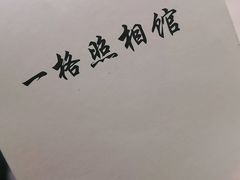 一格照相馆